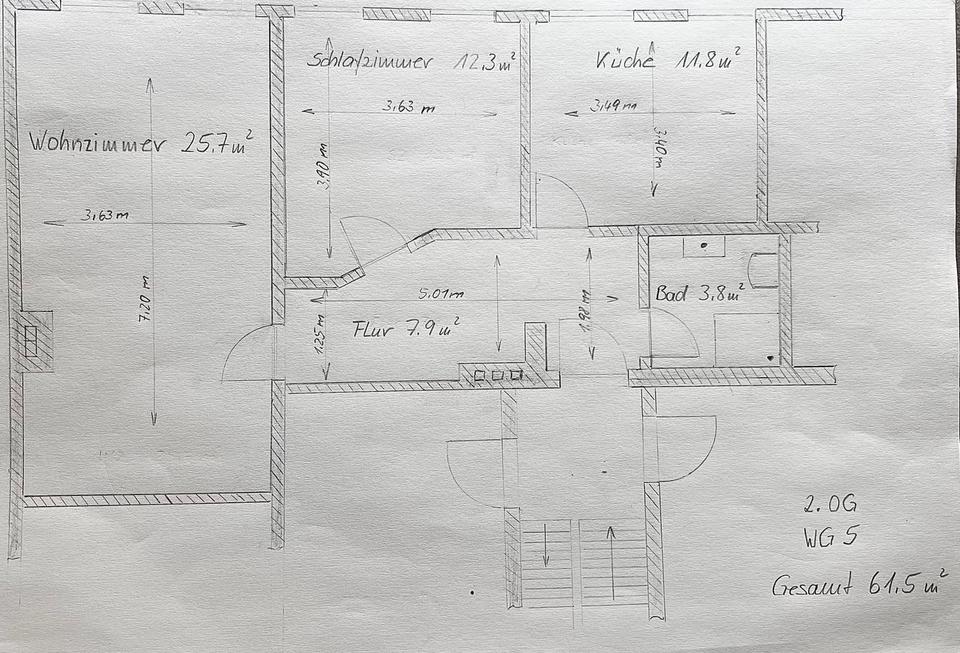 Schlafzimmer 12.3 m²
Küche 11.8 m²
3,63 m
3,49 m
3,90 m
3,40 m
Wohnzimmer 25.7 m²
3,63 m
7,20 m
5.01 m
Bad 3.8 m²
1,25 m
Flur 7.9 m²
1,98 m
2. OG
WG 5
Gesamt 61,5 m²